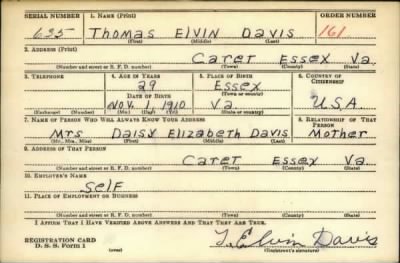 SERIAL NUMBER 1. NAME (Print) ORDER NUMBER
635 Thomas Elvin Davis 161
(First) (Middle) (Last)
2. ADDRESS (Print)
Caret Essex Va.
(Number and street or R. F. D. number) (Town) (County) (State)
3. TELEPHONE 4. AGE IN YEARS 5. PLACE OF BIRTH 6. COUNTRY OF CITIZENSHIP
29 Essex
DATE OF BIRTH (Town or county)
Nov. 1, 1910 Va U.S.A.
(Exchange) (Number) (Mo.) (Day) (Yr.) (State or country)
7. NAME OF PERSON WHO WILL ALWAYS KNOW YOUR ADDRESS 8. RELATIONSHIP OF THAT PERSON
Mrs Daisy Elizabeth Davis Mother
(Mr., Mrs., Miss) (First) (Middle) (Last)
9. ADDRESS OF THAT PERSON
Caret Essex Va.
(Number and street or R. F. D. number) (Town) (County) (State)
10. EMPLOYER'S NAME
Self
11. PLACE OF EMPLOYMENT OR BUSINESS
(Number and street or R. F. D. number) (Town) (County) (State)
I AFFIRM THAT I HAVE VERIFIED ABOVE ANSWERS AND THAT THEY ARE TRUE.
REGISTRATION CARD
D. S. S. Form 1 (over) T. Elvin Davis
(Registrant's signature)